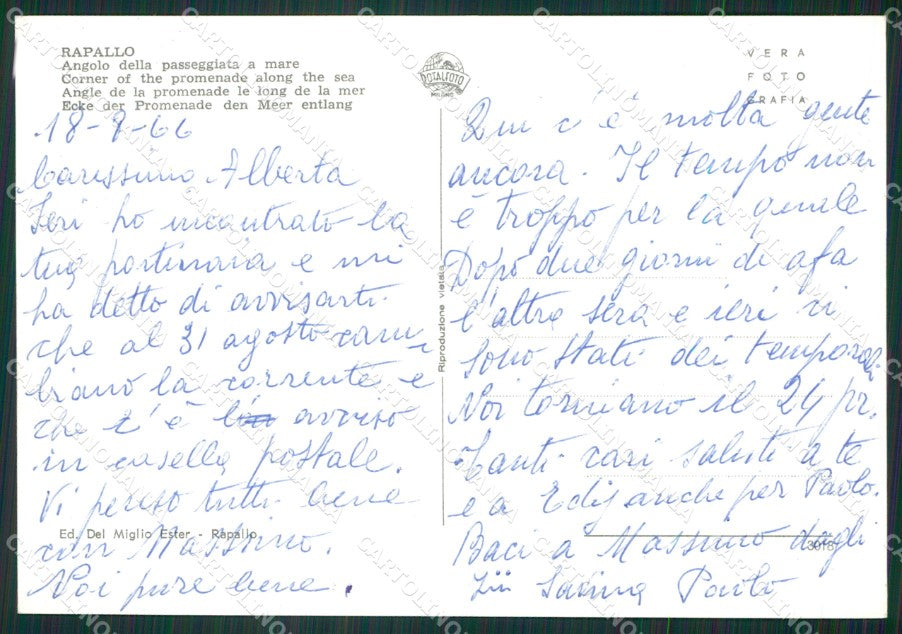 RAPALLO
Angolo della passeggiata a mare
Corner of the promenade along the sea
Angle de la promenade le long de la mer
Ecke der Promenade den Meer entlang
18-8-66
Carissima Alberta
Ieri ho incontrato la
tua portinaia e mi
ha detto di avvisarti
che al 31 agosto cam-
biano la corrente e
che c'è avviso
in casella postale.
Vi penso tutti bene
con Massimo.
Noi pure bene.
Ed. Del Miglio Ester - Rapallo
Riproduzione vietata
TOTALFOTO
MILANO
VERA
FOTO
GRAFIA
Qui c'è molta gente
ancora. Il tempo non
è troppo per la quale
Dopo due giorni di afa
l'altra sera e ieri vi
sono stati dei temporali
Noi torniamo il 24 pr.
Tanti cari saluti a te
e a anche per Paolo.
Baci a Massimo dagli
zii Paolo
39187
CARTOLINOMANIA